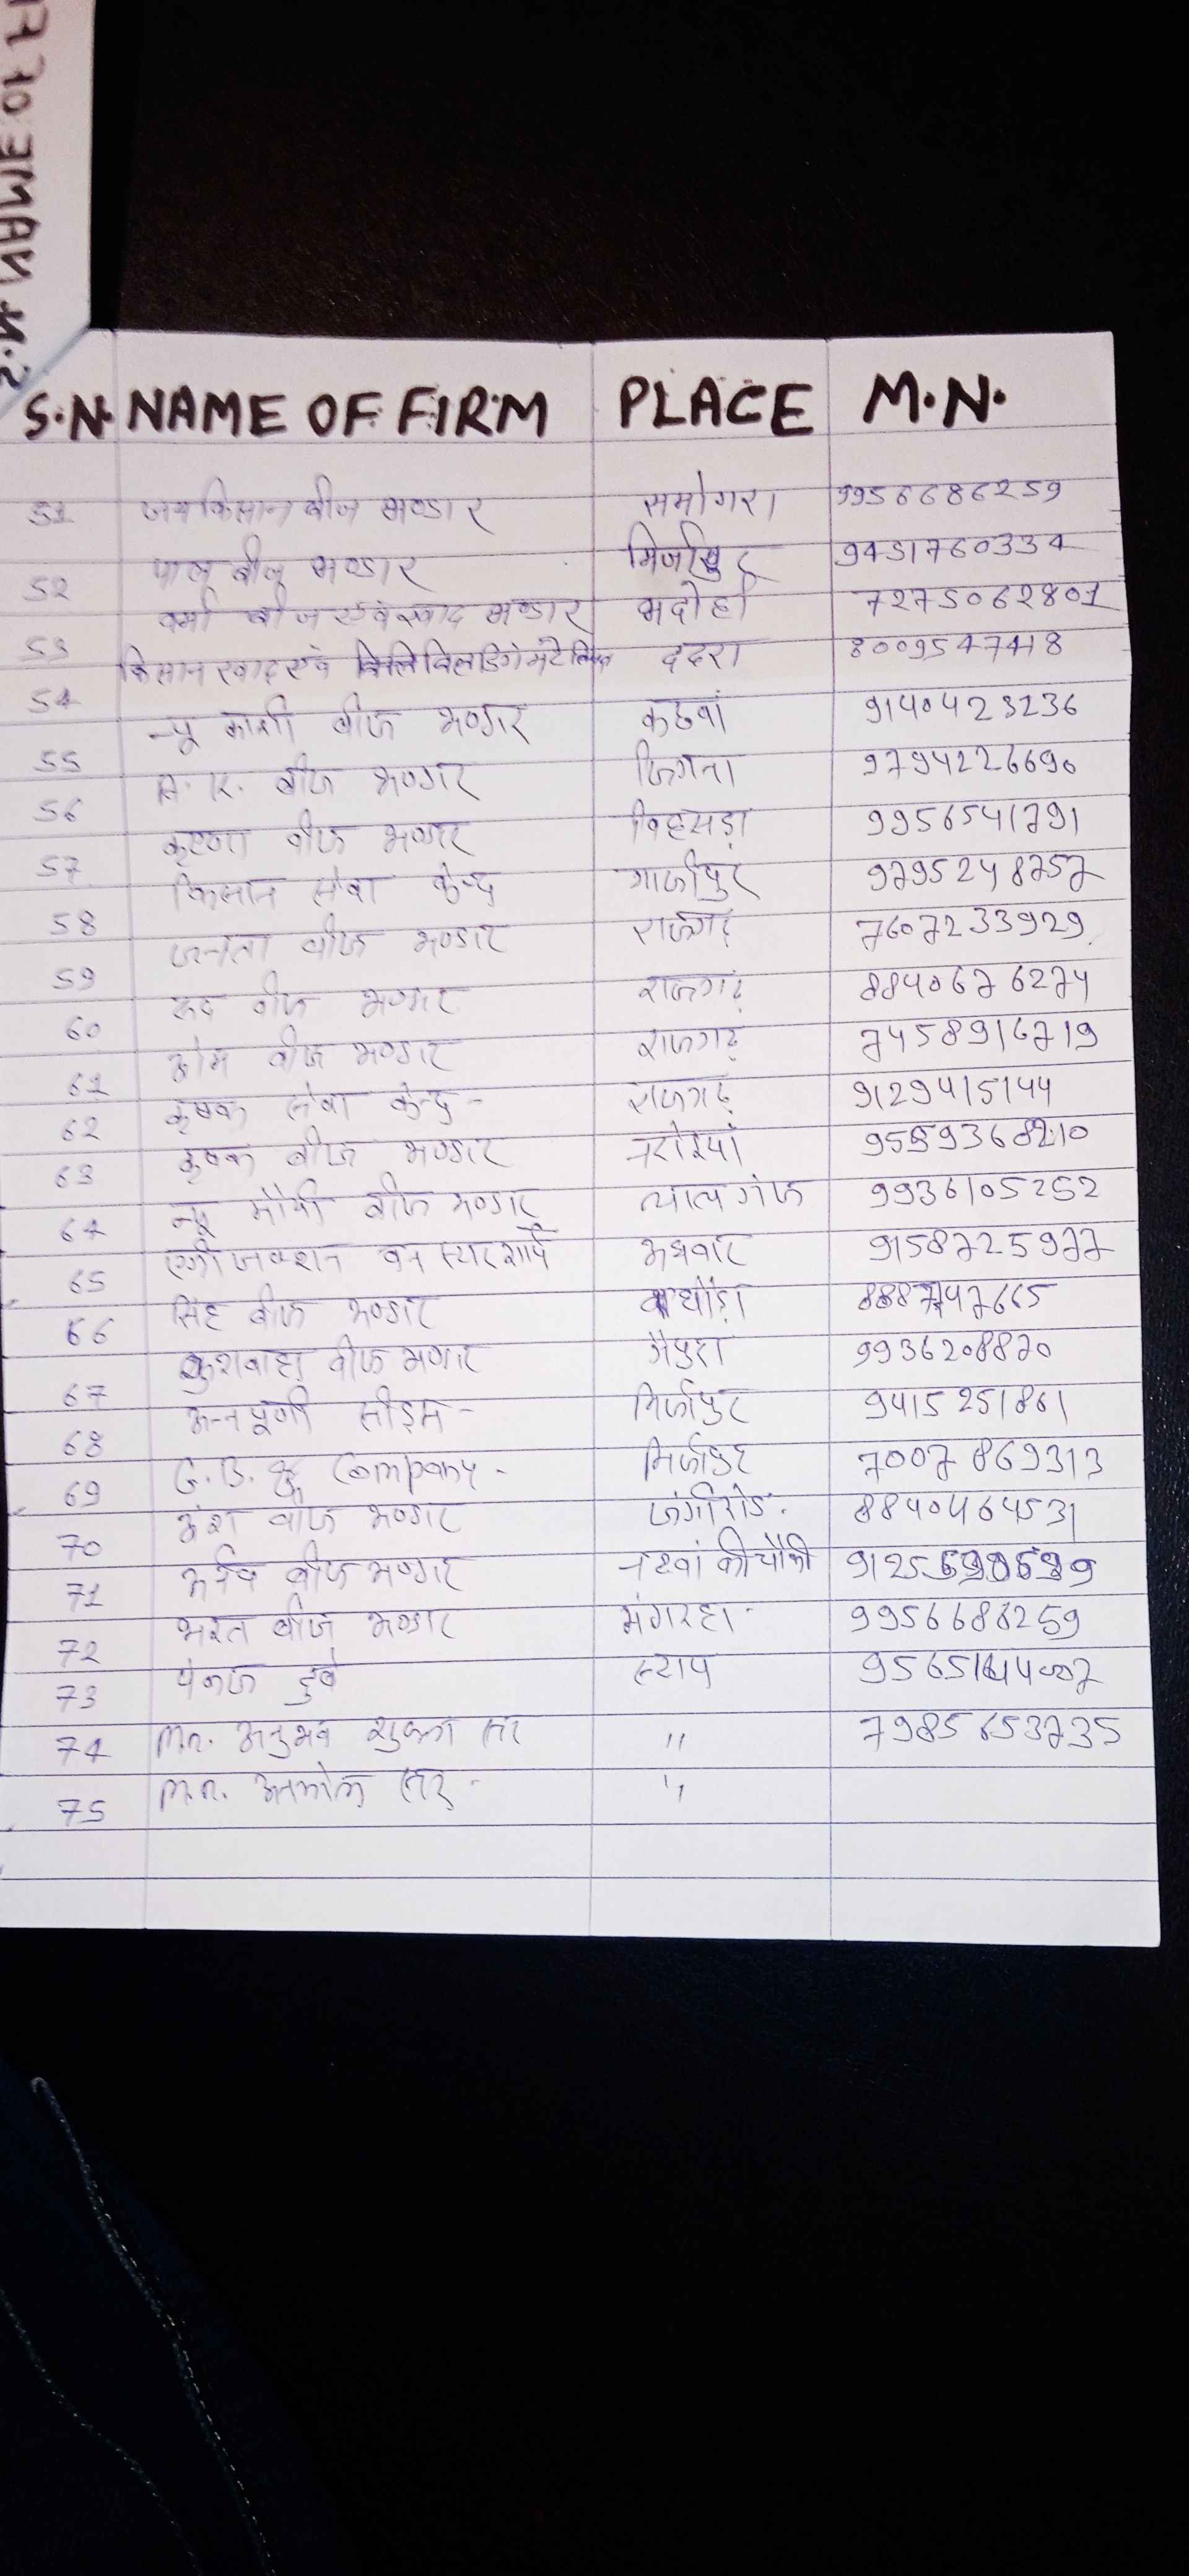 S.N. NAME OF FIRM PLACE M.N.
51 जय किसान बीज भण्डार समोगरा 9956686259
52 पाल बीज भण्डार मिर्जापुर 9451760334
53 वर्मा बीज एवं खाद भण्डार भदोही 7275062801
54 किसान खाद एवं बिल्डिंग मटेरियल ददरा 8009547418
55 न्यू काशी बीज भण्डार कठवां 9140423236
56 बीज भण्डार जिगना 9794226690
57 कृष्णा बीज भण्डार बिहसड़ा 9956541791
58 किसान सेवा केन्द्र गाजीपुर 9795248757
59 जनता बीज भण्डार राजगढ़ 7607233929
60 रूद्र बीज भण्डार राजगढ़ 8840676274
61 ओम बीज भण्डार राजगढ़ 7458916719
62 कृषक सेवा केन्द्र - राजगढ़ 9129415144
63 कृषक बीज भण्डार नरोइयां
64 न्यू मौर्या बीज भण्डार लालगंज 9936105252
65 एग्री जंक्शन वन स्टाप शॉप अघवार 9158725977
66 सिंह बीज भण्डार
67 कुशवाहा बीज भण्डार जैपुरा 9936208870
68 अन्नपूर्णा सीड्स - मिर्जापुर 9415251861
69 & Company - मिर्जापुर 7007869313
70 अंश बीज भण्डार जंगीरोड. 8840464531
71 बीज भण्डार नटवां की चौकी
72 भारत बीज भण्डार मंगरहा - 9956686259
73 पंकज दुबे स्टाप
74 Mr. अनुभव शुक्ला सर " 7985653735
75 Mr. सर - "